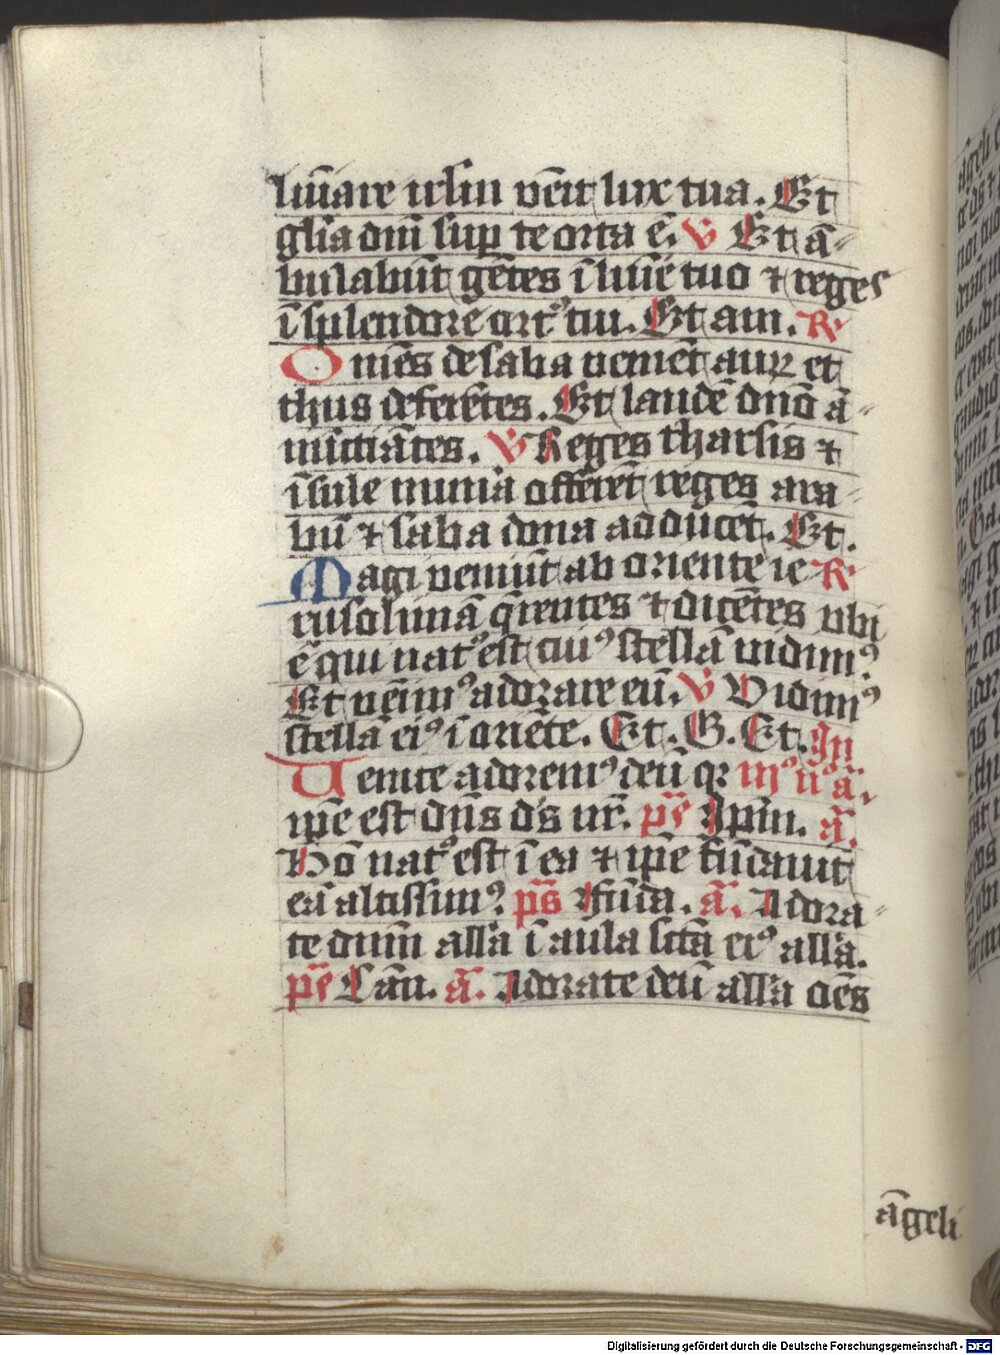 lūiare irlm̄ vēit lux tua. Et
gl̄ia dnī sup te orta ē. V Et ā-
bulabūt gētes ī luīe tuo ⁊ reges
ī splendore ort⁹ tui. Et am. R
Omēs de saba venient aurꝝ et
thus deferētes. Et laudē dn̄o ā-
nūctiātes. V Reges tharsis ⁊
īsule munīa offerēt reges ara-
bū ⁊ saba dona adducēt. Et.
Magi veniūt ab oriente ie R
rusolimā q̄rentes ⁊ dicētes ubi
ē qui nat⁹ est cui⁹ stellā vidim⁹
Et vēim⁹ adorare eū. V Vidim⁹
stellā ei⁹ ī oriēte. Et. G. Et. In
Uenite adorem⁹ deū qr iij⁹ n⁹ ā.
ip̄e est dn̄s d's nr̄. ps Ip̄m. ā.
Hō nat⁹ est ī ea ⁊ ip̄e fūdavit
eā altissim⁹. ps Fūda. ā. Adora-
te dnm̄ all'a ī aula sctā ei⁹ all'a.
ps Cān. ā. Adorate deū all'a oēs
āgeli
Digitalisierung gefördert durch die Deutsche Forschungsgemeinschaft - DFG